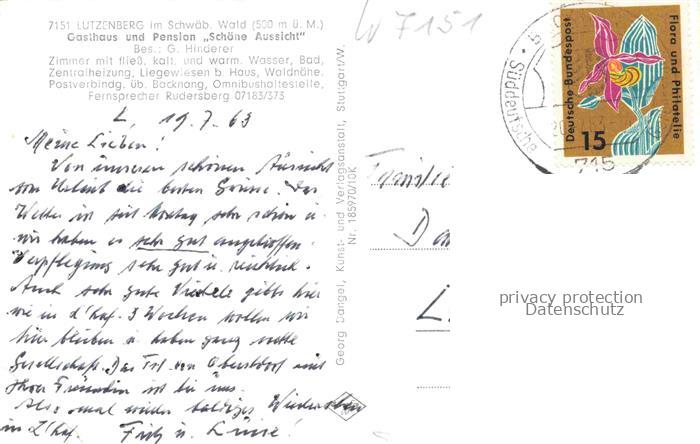 7151 LUTZENBERG im Schwäb. Wald (500 m ü. M.)
Gasthaus und Pension „Schöne Aussicht"
Bes.: G. Hinderer
Zimmer mit fließ. kalt. und warm. Wasser, Bad,
Zentralheizung, Liegewiesen b. Haus, Waldnähe.
Postverbindg. üb. Backnang, Omnibushaltestelle,
Fernsprecher Rudersberg 07183/373
L, 19.7.63
Meine Lieben!
Von unserem schönen Aussicht
vom Urlaub die besten Grüsse! Das
Wetter ist seit Montag sehr schön u.
wir haben es sehr gut angetroffen.
Verpflegung sehr gut u. reichlich.
Auch sehr gute gibts hier
wie in L'haf. 3 Wochen wollen wir
hier bleiben u. haben ganz nette
Gesellschaft. Das Frl. von Oberstdorf mit
ihrer Freundin ist bei uns.
Also mal wieder baldiges Wiedersehen
in L'haf. Fritz u. Luise!
Georg Dangel, Kunst- und Verlagsanstalt, Stuttgart/W.
Nr. 185970/10K
W 7151
Familie
L.
Süddeutsche
715
Deutsche Bundespost
15
Flora und Philatelie
privacy protection
Datenschutz